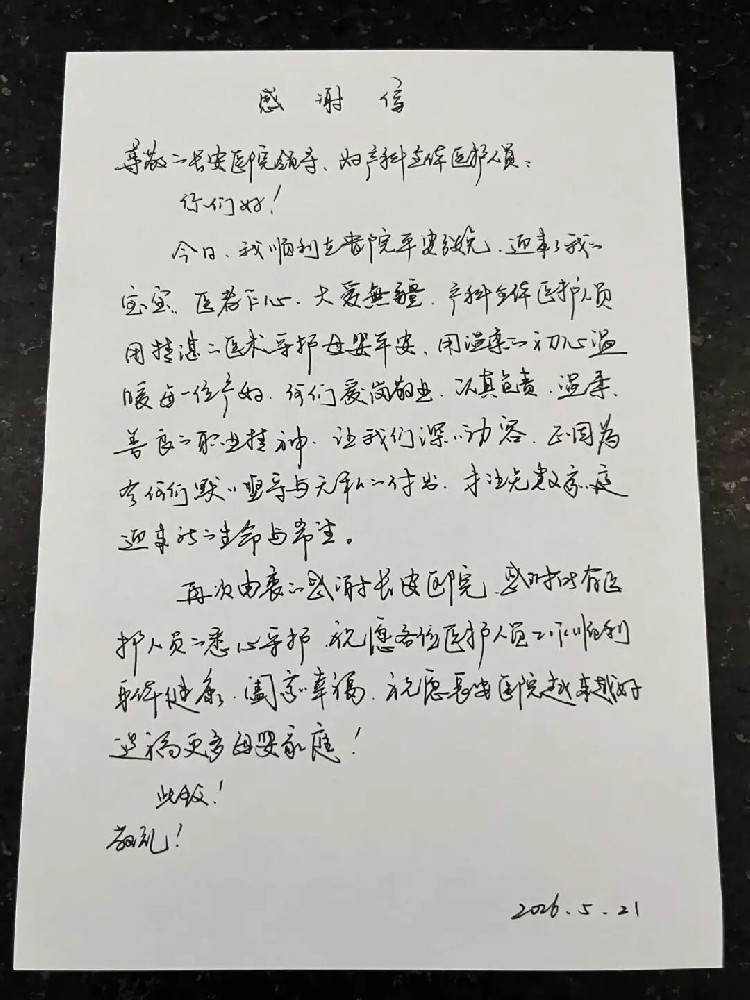 感谢信
尊敬的长安医院领导、妇产科全体医护人员:
你们好!
今日、我顺利在贵院平安分娩,迎来了我的
宝宝。医者仁心、大爱無疆、产科全体医护人员
用精湛的医术守护母婴平安、用温柔的初心温
暖每一位产妇、你们爱岗敬业、认真负责、温柔、
善良的职业精神、让我们深深动容、正因为
有你们默默坚守与无私的付出、才让无数家庭
迎来新的生命与希望。
再次由衷的感谢长安医院、感谢所有医
护人员的悉心守护、祝愿各位医护人员工作顺利
身体健康、阖家幸福、祝愿长安医院越来越好
造福更多母婴家庭!
此致!
敬礼!
2026.5.21